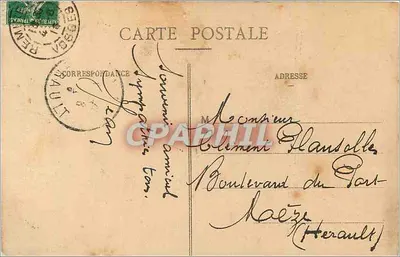 CARTE POSTALE
CORRESPONDANCE
ADRESSE
Souvenir amical
Jean
M
Monsieur
Clément Plansolles
Boulevard du Port
Maèze
(Herault)
HAUT
CPAPHIL